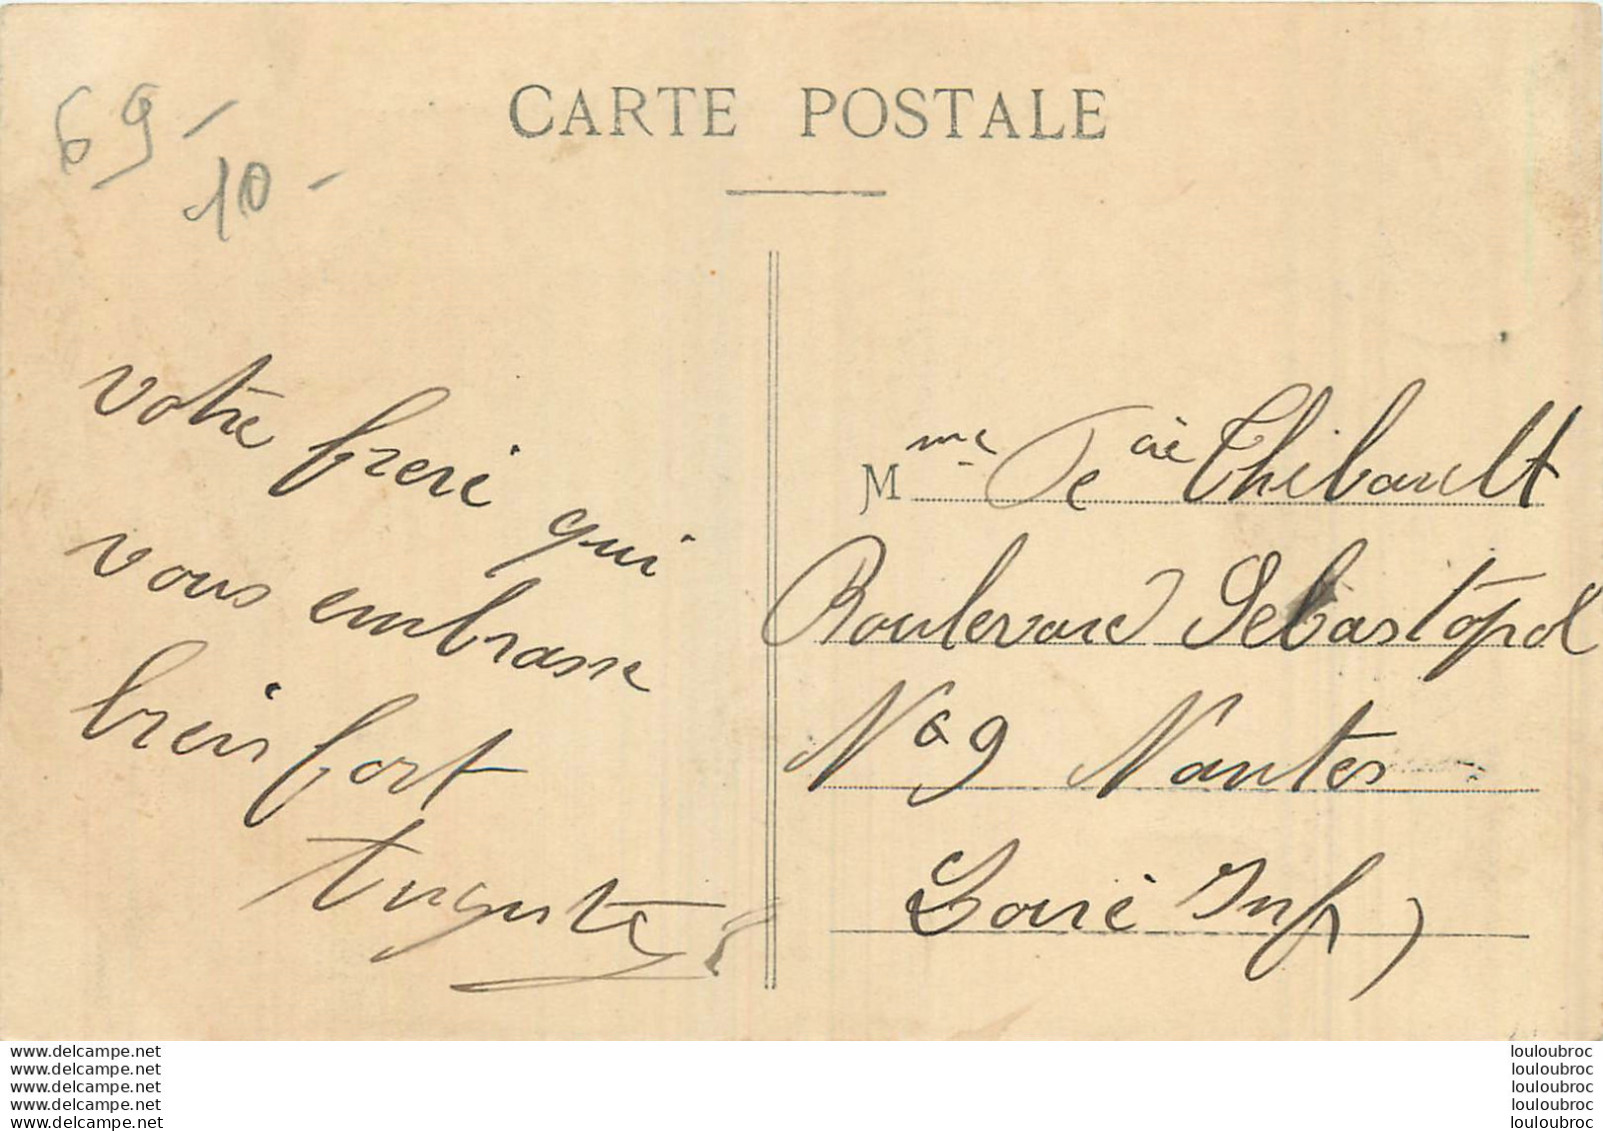 69-
10-
CARTE POSTALE
votre frere qui
vous embrasse
bien fort
Auguste
Mme Thibault
Boulevard Sebastopol
No 9 Nantes
Loire Inf)
www.delcampe.net
www.delcampe.net
www.delcampe.net
www.delcampe.net
www.delcampe.net
louloubroc
louloubroc
louloubroc
louloubroc
louloubroc